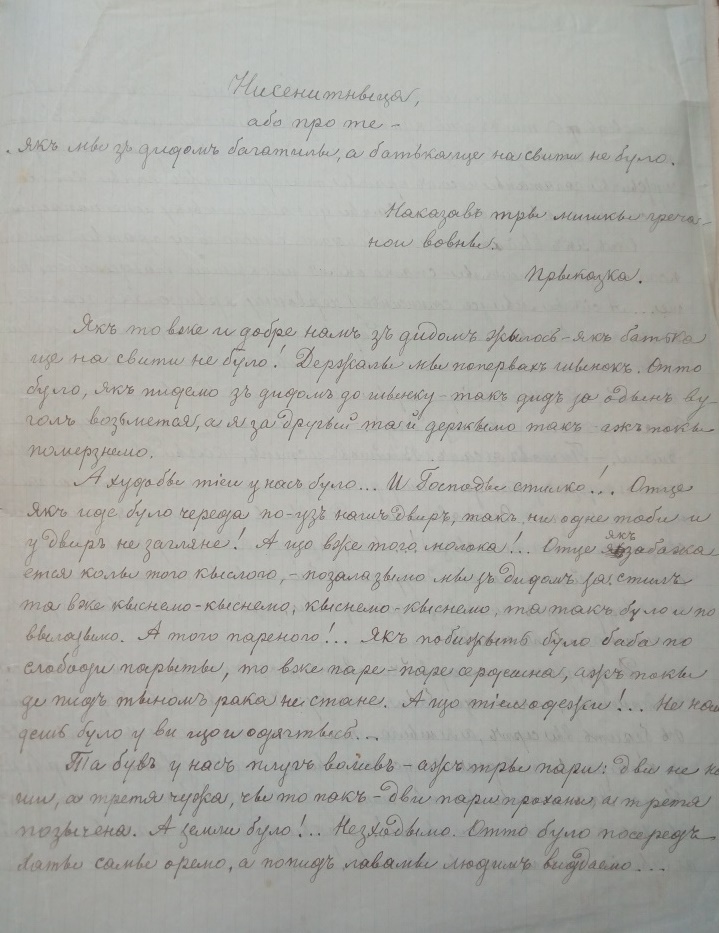 Нисенитныця,
або про те –
якъ мы зъ дидомъ багатилы, а батька ще на свити не було.
Наказавъ тры мишкы греча-
нои вовны.
Прыказка.
Якъ то вже и добре намъ зъ дидомъ жылось – якъ батька
ще на свити не було! Держалы мы попервахъ шынокъ. Отто
було, якъ пидемо зъ дидомъ до шынку – такъ дидъ за одынъ ву-
голъ возьмется, а я за другый та й держымо такъ – ажъ покы
померзнемо.
А худобы тіеи у насъ було... И Господы стилко!.. Отце
якъ иде було череда по-узъ нашъ двиръ, такъ ни одне тоби и
у двиръ не загляне! А що вже того молока!.. Отце якъ забажа
ется колы того кыслого, – позалазымо мы зъ дидомъ за стилъ
та вже кыснемо-кыснемо, кыснемо-кыснемо, та такъ було и по
вылазымо. А того пареного!.. Якъ побижыть було баба по
слободи парыты, то вже паре-паре сердешна, ажъ покы
де пидъ тыномъ рака не стане. А що тіеи одежи!.. Не най
дешъ було у ви що и одягтысь...
Та бувъ у насъ плугъ воливъ – ажъ тры пари: дви не на
ши, а третя чужа, чы то пакъ – дви пари прохани, и третя
позычена. А земли було!.. Незходымо. Отто було посередъ
хаты самы оремо, а попидъ лавамы людямъ виддаемо...